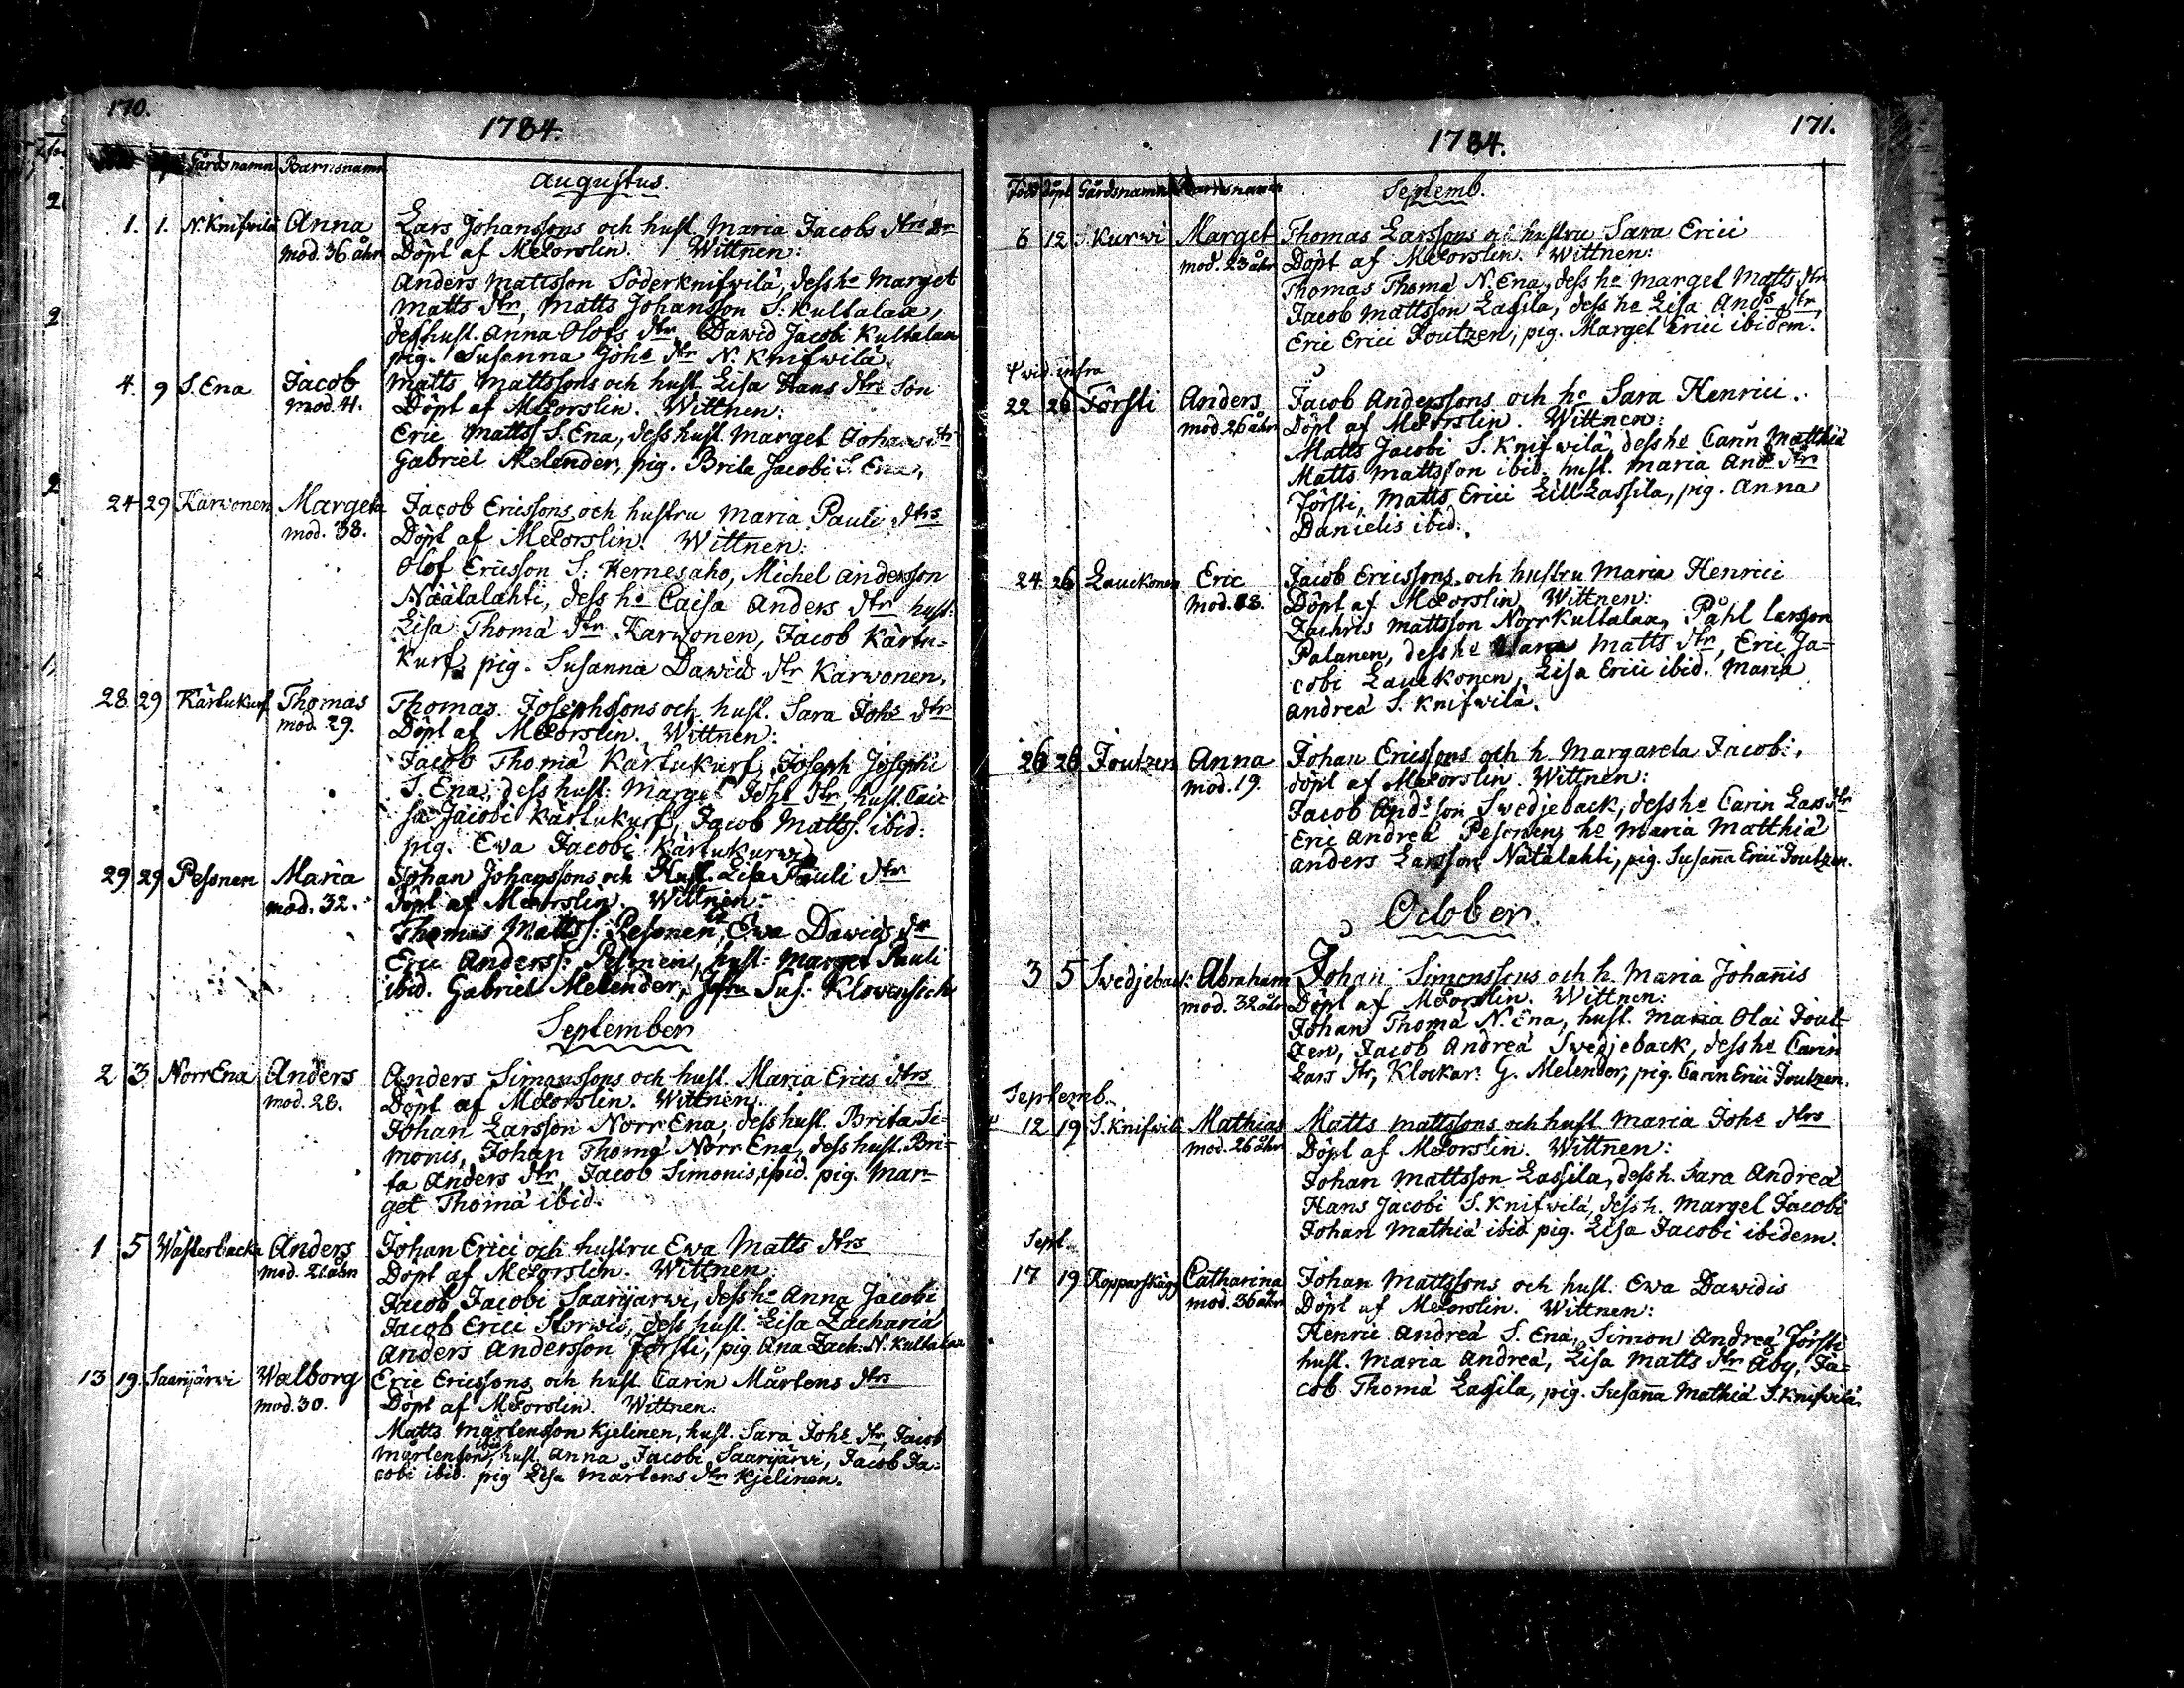 170.
1784.
Gårdsnamn Barnsnamn
Augustus.
1. 1. N. Knifvilä Anna Lars Johanssons och hust. Maria Jacobs dtrs dr
mod. 36 åhr Döpt af MCorslin. Wittnen:
Anders Mattsson Söderknifvilä, dess he Marget
Matts dtr, Matts Johansson S: Kultalaa,
dess hust. Anna Olofs dtr Dawid Jacobi Kultalaa
pig. Susanna Johs dtr N. Knifwilä.
4. 9 S. Ena Jacob Matts Mattssons och hust. Lisa Hans dtrs Son
mod. 41. Döpt af MCorslin. Wittnen:
Eric Mattss S. Ena, dess hust. Marget Johans dtr
Gabriel Melender, pig. Brita Jacobi S. Ena,
24 29 Karwonen Margeta Jacob Ericssons och hustru Maria Pauli dtrs
mod. 38. Döpt af MCorslin. Wittnen:
Olof Ericsson S: Hernesaho, Michel Andersson
Näätälahti, dess he Caisa Anders dtr hust:
Lisa Thomä dtr Karwonen, Jacob Kärtu-
kurf, pig. Susanna Dawids dtr Karwonen,
28 29 Kärtukurf Thomas Thomas Josephssons och hust. Sara Johs dtr
mod. 29. Döpt af MCorslin. Wittnen:
Jacob Thomä Kärtukurf, Joseph Josephi
S. Ena, dess hust: Marget Johs dtr, hust. Cai-
sa Jacobi Kärtukurf, Jacob Mattss. ibid:
pig. Ewa Jacobi Kärtukurwi
29 29 Pesonen Maria Johan Johanssons och Hust. Lisa Pauli dtr
mod. 32. Döpt af MCorslin. Wittnen:
Thomas Mattss: Pesonen, Ewa Dawids dr
Eric Anderss: Pesonen, hust: Marget Pauli
ibid. Gabriel Melender, Sus: Klowensich
September
2 3 Norr Ena Anders Anders Simonssons och hust. Maria Erics dtrs
mod. 28. Döpt af MCorslin. Wittnen:
Johan Larsson Norr Ena, dess hust. Brita Si-
monis, Johan Thomä Norr Ena, dess hust. Bri-
ta Anders dtr, Jacob Simonis ibid. pig. Mar-
get Thomä ibid.
1 5 Wästerbacka Anders Johan Erici och hustru Ewa Matts dtrs
mod. 21 åhr Döpt af MCorslin. Wittnen:
Jacob Jacobi Saarijärwi, dess he Anna Jacobi
Jacob Erici Storwis, dess hust. Lisa Zachariä
Anders Andersson Försti, pig. Ana Zach: N. Kultalaa
13 19. Saarijärvi Walborg Eric Ericssons och hust Carin Mårtens dtrs
mod. 30. Döpt af MCorslin. Wittnen:
Matts Mårtensson Kjelinen, hust. Sara Johs dtr, Jacob
Mårtensson ibid, hust. Anna Jacobi Saarijärvi, Jacob Ja-
cobi ibid. pig Lisa Mårtens dtr Kjelinen.
171.
1784.
Född Döpt Gårdsnamn Barnsnamn
Septemb.
6 12 Kurwi Marget Thomas Larssons och hustru Sara Erici
mod. 23 åhr Döpt af MCorslin. Wittnen:
Thomas Thomä N. Ena, dess he Marget Matts dtr
Jacob Mattsson Lassila, dess he Lisa Ands dtr,
Eric Erici Joutzen, pig. Marget Erici ibidem.
vid. infra
22 26 Försti Anders Jacob Anderssons och he Sara Henrici.
mod. 26 åhr Döpt af MCorslin. Wittnen:
Matts Jacobi S. Knifwilä, dess he Carin Matthiä
Matts Mattsson ibid. hust. Maria Ands dtr
Försti, Matts Erici Lill Lassila, pig. Anna
Danielis ibid.
24 26 Lauckonen Eric Jacob Ericssons och hustru Maria Henrici
mod. 28. Döpt af MCorslin. Wittnen:
Zachris Mattsson Norr Kultalaa, Påhl Larsson
Palanen, dess he Maria Matts dtr, Eric Ja-
cobi Lauckonen, Lisa Erici ibid. Maria
Andreä S. Knifwilä.
26 26 Joutzen Anna Johan Ericssons och h Margareta Jacobi.
mod. 19. döpt af MCorslin. Wittnen:
Jacob Ands son Swedjeback, dess he Carin Lars dtr
Eric Andreä Pesonen, he Maria Matthiä
Anders Larsson Nätälahti, pig. Susanna Erici Joutzen.
October.
3 5 Swedjeback: Abraham Johan Simonssons och h. Maria Johannis
mod. 32 åhr Döpt af MCorslin. Wittnen:
Johan Thomä N. Ena, hust. Maria Olai Jout-
zen, Jacob Andreä Swedjeback, dess he Carin
Lars dtr, Klockar: G. Melender, pig. Carin Erici Joutzen.
Septemb.
12 19 S. Knifvil Mathias Matts Mattssons och hust Maria Johs dtrs
mod. 26 åhr Döpt af MCorslin. Wittnen:
Johan Mattsson Lassila, dess h. Sara Andreä
Hans Jacobi S. Knifwilä, dess h. Marget Jacobi
Johan Mathiä ibid pig. Lisa Jacobi ibidem.
Sept.
17 19 Kopparskägg Catharina Johan Mattssons och hust. Ewa Dawidis
mod. 36 åhr Döpt af MCorslin. Wittnen:
Henric Andreä S. Ena, Simon Andreä Försti
hust. Maria Andreä, Lisa Matts dtr Åby, Ja-
cob Thomä Lassila, pig. Susanna Mathiä S. Knifwilä.